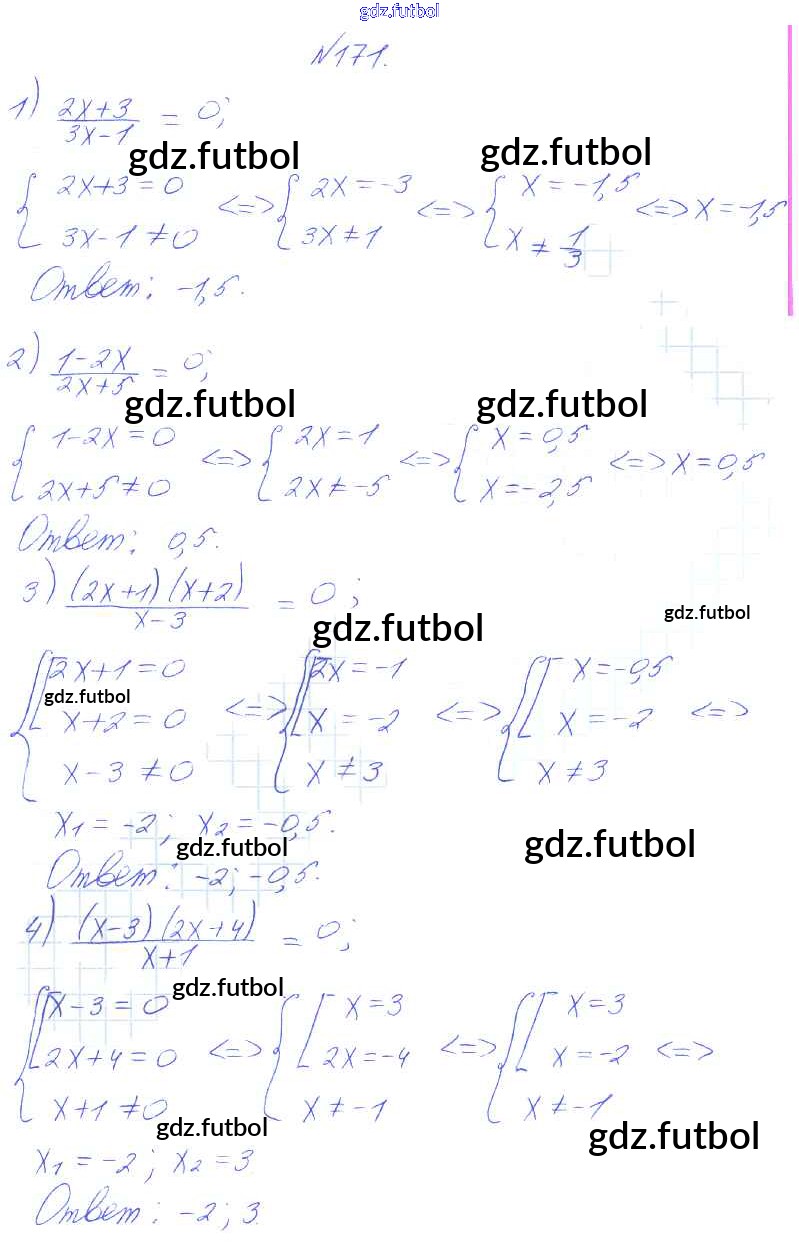 gdz.futbol
N171.
1) (2x+3)/(3x-1) = 0;
gdz.futbol gdz.futbol
{ 2x+3=0 <=> { 2x=-3 <=> { x=-1,5 <=> x=-1,5
3x-1≠0 3x≠1 x≠1/3
Ответ: -1,5.
2) (1-2x)/(2x+5) = 0;
gdz.futbol gdz.futbol
{ 1-2x=0 <=> { 2x=1 <=> { x=0,5 <=> x=0,5
2x+5≠0 2x≠-5 x=-2,5
Ответ: 0,5.
3) (2x+1)(x+2)/(x-3) = 0;
gdz.futbol gdz.futbol
{ [ 2x+1=0 <=> { [ 2x=-1 <=> { [ x=-0,5 <=>
gdz.futbol
x+2=0 x=-2 x=-2
x-3≠0 x≠3 x≠3
x1=-2; x2=-0,5.
gdz.futbol gdz.futbol
Ответ: -2; -0,5.
4) (x-3)(2x+4)/(x+1) = 0;
gdz.futbol
{ [ x-3=0 <=> { [ x=3 <=> { [ x=3 <=>
2x+4=0 2x=-4 x=-2
x+1≠0 x≠-1 x≠-1
gdz.futbol gdz.futbol
x1=-2; x2=3.
Ответ: -2; 3.